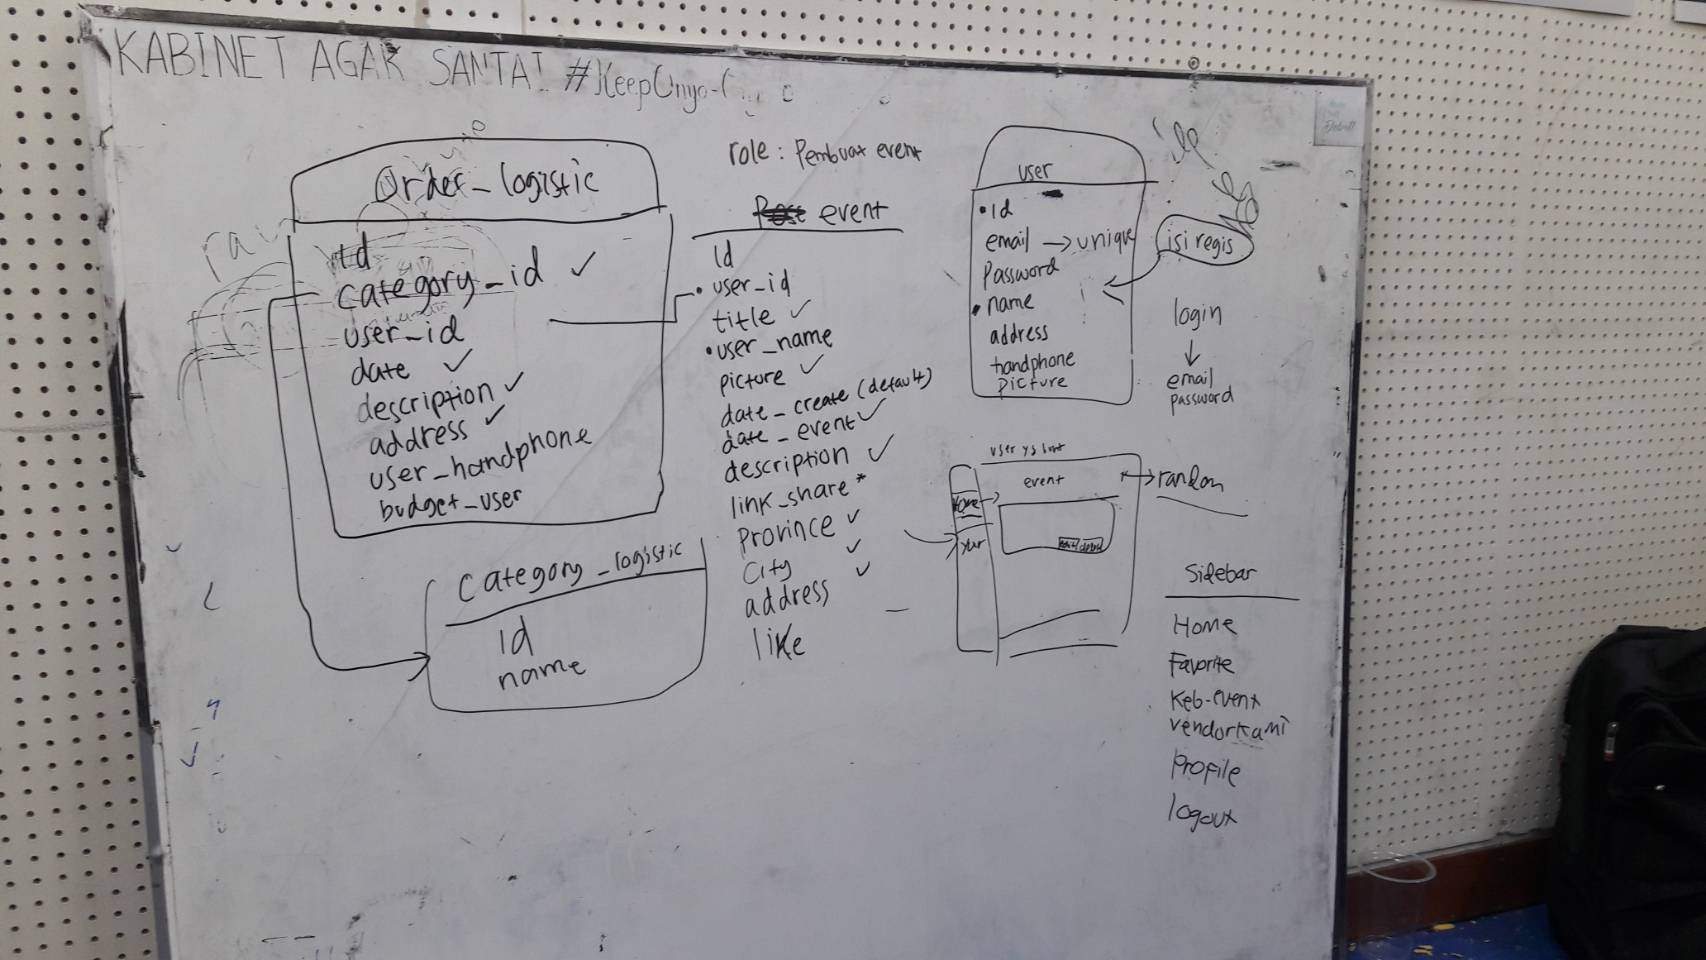 KABINET AGAK SANTAI #KeepOnyo-
Order_logistic
Id
category_id ✓
user_id
date ✓
description ✓
address ✓
user_handphone
budget_user
category_logistic
id
name
role : Pembuat event
event
Id
• user_id
title ✓
• user_name
picture ✓
date_create (default)
date_event ✓
description ✓
link_share *
Province ✓
City ✓
address ✓
like
user
• id
email → unique
Password
• name
address
handphone
picture
isi regis
login
↓
email
password
event
Home
→ random
Sidebar
Home
Favorite
Keb-event
vendorkami
Profile
logout